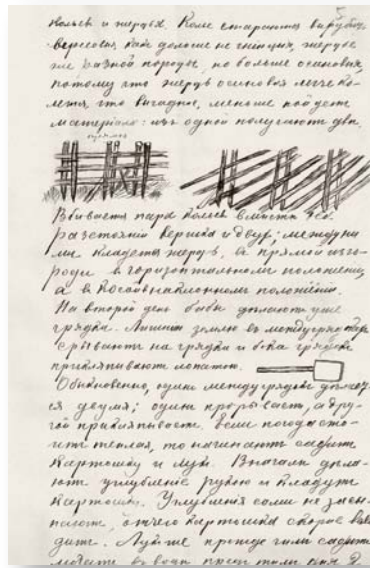 кольев и жердья. Колье стараются вырубать
вересовы, как дольше не гниющих, жердье
же разной породы, но больше осиновая,
потому что жердь осиновая легче ко-
лется, что выгодно, меньше пойдет
матерiала: изъ одной получают двѣ.
прямая
Вбивается пара кольев вместѣ
разстоянiи вершка и двух; между ни
ми кладется жердь, в прямой изго-
роди в горизонтальном положенiи,
а в косой в наклонном положенiи.
На второй день бабы делают уже
грядки. Лишнюю землю въ междугрядках
срывают на грядки и бока грядок
прихляпывают лопатою.
Обыкновенно, одни междугрядки делает-
ся двумя; один прорывает, а дру-
гой прихляпывает. Если погода сто-
ит теплая, то начинают садить
картошку и лук. Вначале дела-
ют углубленiе рукою и кладут
картошку. Углубленiя сами не засы-
пают, отчего картошка скорее
дит. Лук же прежде чем садить